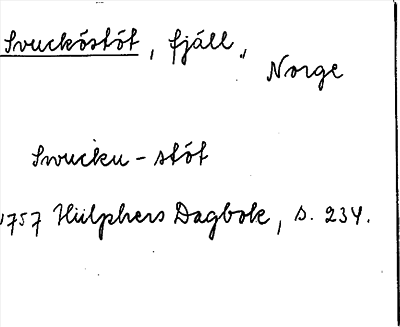 Svuckóstót, fjäll,
Norge
Svucku-stót
1757 Hülphers Dagbok, s. 234.